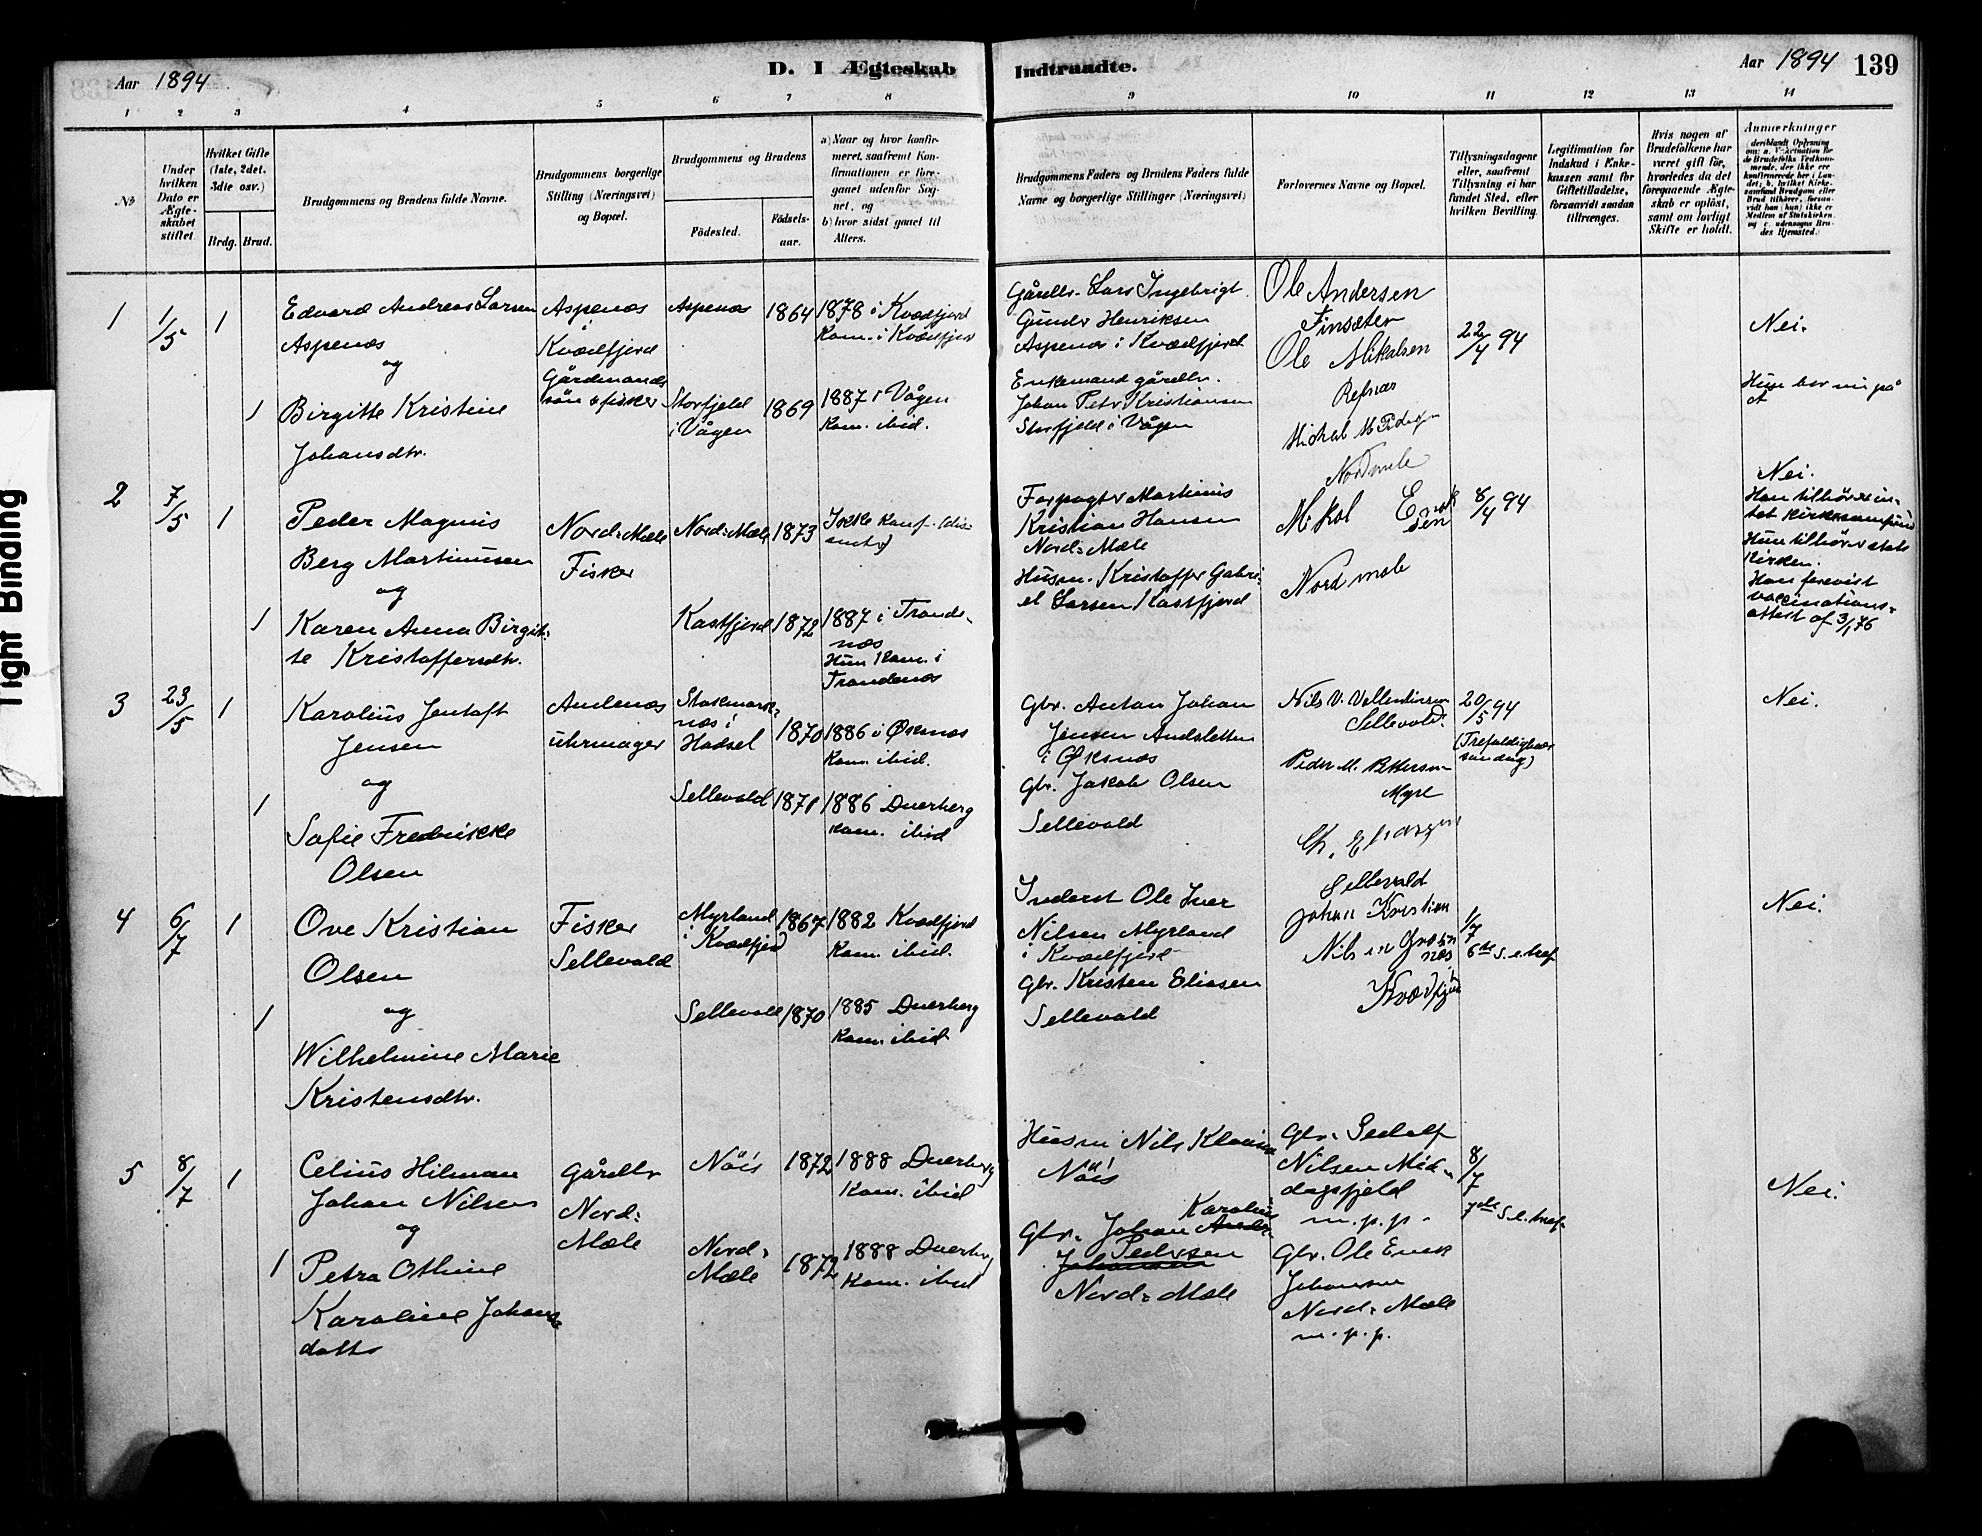 Aar 1894
D. I Ægteskab
Indtraadte.
Aar 1894 139
1 2 3 4 5 6 7 8 9 10 11 12 13 14
№
Under hvilken Dato er Ægteskabet stiftet
Hvilket Gifte (1ste, 2det. 3die osv.)
Brdg. Brud.
Brudgommens og Brudens fulde Navne.
Brudgommens borgerlige Stilling (Næringsvei) og Bopæl.
Brudgommens og Brudens
Födested.
Födsels-aar.
a) Naar og hvor konfirmeret, saafremt Konfirmationen er foregaaet udenfor Sognet, og
b) hvor sidst gaaet til Alters.
Brudgommens Faders og Brudens Faders fulde Navne og borgerlige Stillinger (Næringsvei)
Forlovernes Navne og Bopæl.
Tillysningsdagene eller, saafremt Tillysning ei har fundet Sted, efter hvilken Bevilling.
Legitimation for Indskud i Enkekassen samt for Giftetilladelse, forsaavidt saadan tiltrænges.
Hvis nogen af Brudefolkene har været gift för, hvorledes da det foregaaende Ægteskab er oplöst, samt om lovligt Skifte er holdt.
Anmærkninger
Tight Binding
1
1/5
1
Edvard Andreas Larsen
Aspenæs
og
1
Birgitte Kristine
Johansdtr.
Aspenæs
i
Kvædfjord
Gårdmands
sön & fisker
Aspenæs
1864
1878 i Kvædfjord
Kom. i Kvædfjord
Storfjeld
i Vågen
1869
1887 i Vågen
Kom. ibid.
Gårdbr. Lars Ingebrigt
Gunder Henriksen
Aspenæs i Kvædfjord
Enkemand gårdbr.
Johan Petr Kristiansen
Storfjeld i Vågen
Ole Andersen
Finsæter
Ole Mikalsen
Refsnæs
22/4 94
Nei.
2
7/5
1
Peder Magnus
Berg Martinusen
og
1
Karen Anna Birgit-
te Kristoffersdtr.
Nord-Mæle
Fisker
Nord-Mæle
1873
Ikke konf.
Kastfjord
1872
1887 i Trande-
næs
Hun Kom. i
Trandenæs
Forpagter Martinus
Kristian Hansen
Nord-Mæle
Husm. Kristoffer Gabri-
el Larsen Kastfjord
Nordmele
Nordmele
8/4 94
Nei.
Han tilhörer in-
tet kirkesamfund
Hun tilhörer stats
kirken.
Han forevist
vaccinations-
attest af 3/1 76
3
23/5
1
Karolius Jentoft
Jensen
og
1
Sofie Fredrikke
Olsen
Andenæs
uhrmager
Stokmark-
næs i
Hadsel
1870
1886 i Øksnæs
Kom. ibid.
Sellevold
1871
1886 Dverberg
Kom. ibid
Gbr. Anton Johan
Jensen Andsletten
i Øksnæs
Gbr. Jakob Olsen
Sellevold
Nils V. Vallentinsen
Sellevold.
Peder M. Pettersen
Myre
20/5 94
(Trefoldigheds
söndag)
Nei.
4
6/7
1
Ove Kristian
Olsen
og
1
Wilhelmine Marie
Kristensdtr.
Fisker
Sellevold
Myrland
i Kvædfjord
1867
1882 Kvædfjord
Kom. ibid.
Sellevold
1870
1885 Dverberg
Kom. ibid
Inderst Ole Iver
Nilsen Myrland
i Kvædfjord
Gbr. Kristen Eliasen
Sellevold
Sellevold
Johan Kristian
Kvædfjord
1/7
6te S. e. tref.
Nei.
5
8/7
1
Celius Hilman
Johan Nilsen
og
1
Petra Othine
Karoline Johans-
datter
Gårdbr
Nord-
Mæle
Nöis
1872
1888 Dverberg
Kom. ibid
Nord-
Mæle
1872
1888 Dverberg
Kom. ibid
Husm Nils Klausen
Nöis
Gbr. Johan Karolius
Pedersen
Nord-Mæle
Gbr. Sedolf
Nilsen Mid-
dagsfjeld
m.p.p.
Gbr. Ole Enok
Johansen
Nord-Mæle
m.p.p.
8/7
7de S. e. tref.
Nei.